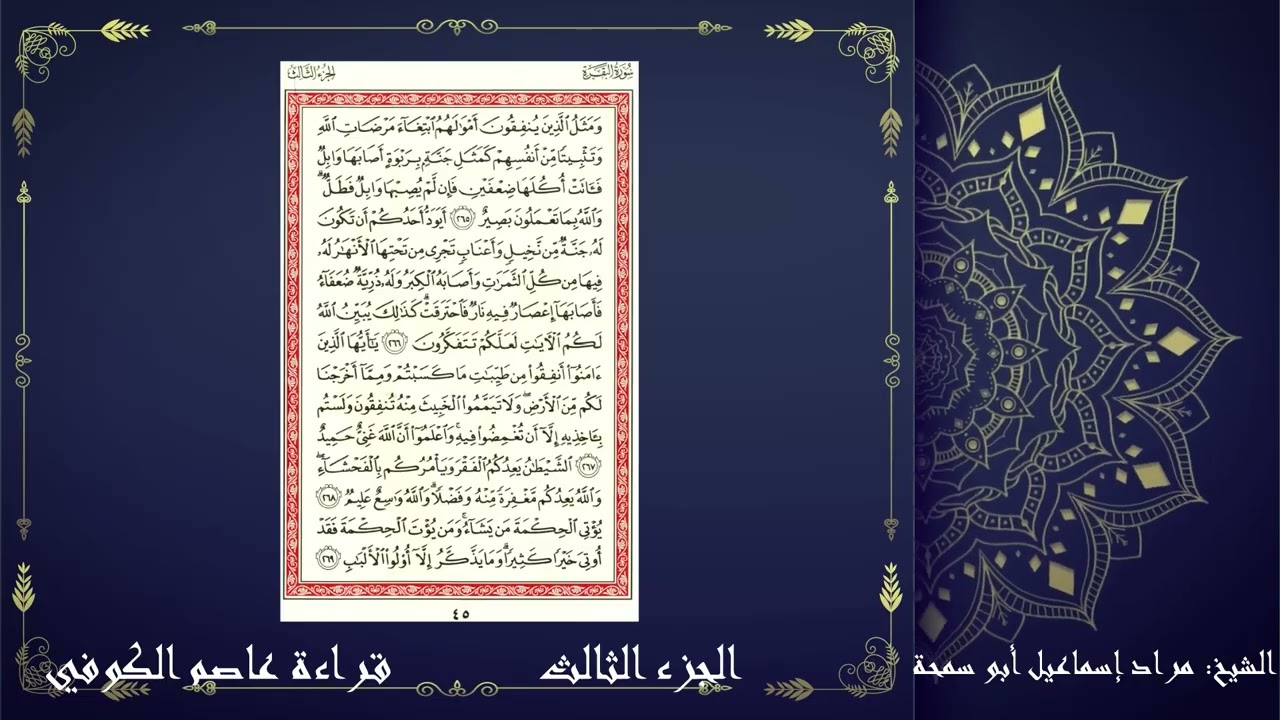 سُورَةُ البَقَرَةِ
الجُزْءُ الثَّالِثُ
وَمَثَلُ ٱلَّذِينَ يُنفِقُونَ أَمْوَٰلَهُمُ ٱبْتِغَآءَ مَرْضَاتِ ٱللَّهِ
وَتَثْبِيتًا مِّنْ أَنفُسِهِمْ كَمَثَلِ جَنَّةٍۭ بِرَبْوَةٍ أَصَابَهَا وَابِلٌ
فَـَٔاتَتْ أُكُلَهَا ضِعْفَيْنِ فَإِن لَّمْ يُصِبْهَا وَابِلٌ فَطَلٌّۗ
وَٱللَّهُ بِمَا تَعْمَلُونَ بَصِيرٌ ٢٦٥ أَيَوَدُّ أَحَدُكُمْ أَن تَكُونَ
لَهُۥ جَنَّةٌ مِّن نَّخِيلٍ وَأَعْنَابٍ تَجْرِى مِن تَحْتِهَا ٱلْأَنْهَٰرُ لَهُۥ
فِيهَا مِن كُلِّ ٱلثَّمَرَٰتِ وَأَصَابَهُ ٱلْكِبَرُ وَلَهُۥ ذُرِّيَّةٌ ضُعَفَآءُ
فَأَصَابَهَآ إِعْصَارٌ فِيهِ نَارٌ فَٱحْتَرَقَتْۗ كَذَٰلِكَ يُبَيِّنُ ٱللَّهُ
لَكُمُ ٱلْـَٔايَٰتِ لَعَلَّكُمْ تَتَفَكَّرُونَ ٢٦٦ يَٰٓأَيُّهَا ٱلَّذِينَ
ءَامَنُوٓا۟ أَنفِقُوا۟ مِن طَيِّبَٰتِ مَا كَسَبْتُمْ وَمِمَّآ أَخْرَجْنَا
لَكُم مِّنَ ٱلْأَرْضِۖ وَلَا تَيَمَّمُوا۟ ٱلْخَبِيثَ مِنْهُ تُنفِقُونَ وَلَسْتُم
بِـَٔاخِذِيهِ إِلَّآ أَن تُغْمِضُوا۟ فِيهِۚ وَٱعْلَمُوٓا۟ أَنَّ ٱللَّهَ غَنِىٌّ حَمِيدٌ
٢٦٧ ٱلشَّيْطَٰنُ يَعِدُكُمُ ٱلْفَقْرَ وَيَأْمُرُكُم بِٱلْفَحْشَآءِۖ
وَٱللَّهُ يَعِدُكُم مَّغْفِرَةً مِّنْهُ وَفَضْلًاۗ وَٱللَّهُ وَٰسِعٌ عَلِيمٌ ٢٦٨
يُؤْتِى ٱلْحِكْمَةَ مَن يَشَآءُۚ وَمَن يُؤْتَ ٱلْحِكْمَةَ فَقَدْ
أُوتِىَ خَيْرًا كَثِيرًاۗ وَمَا يَذَّكَّرُ إِلَّآ أُو۟لُوا۟ ٱلْأَلْبَٰبِ ٢٦٩
٤٥
الشيخ: مراد إسماعيل أبو سمحة
الجزء الثالث
قراءة عاصم الكوفي